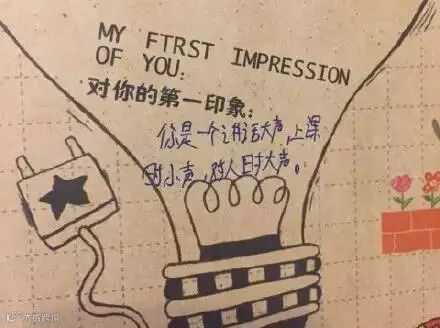 MY FIRST IMPRESSION
OF YOU:
对你的第一印象：
你是一个讲话大声,上课
时小声,对人日时大声。
大数跨境